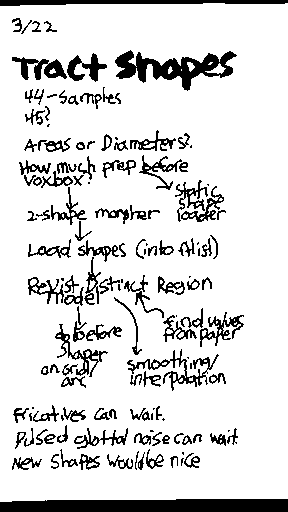 3/22
Tract Shapes
44-Samples
45?
Areas or Diameters?
How much prep before
voxbox?
static
shape
loader
2-shape morpher
Load shapes (into ftlist)
Revist Distinct Region
model
find values
from paper
do before
shaper
on grid/
arc
smoothing/
interpolation
Fricatives can wait.
Pulsed glottal noise can wait
New shapes would be nice